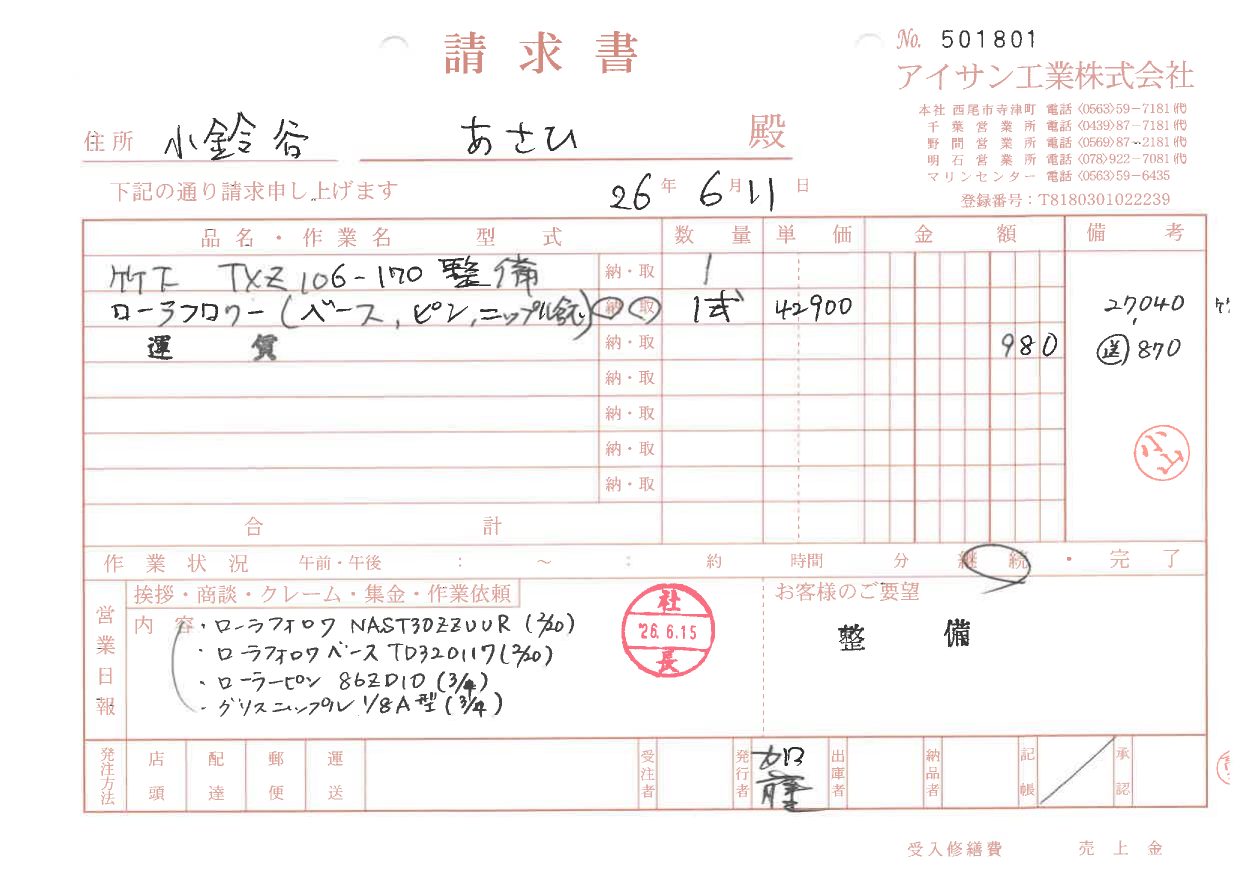 請求書
No. 501801
アイサン工業株式会社
本社 西尾市寺津町 電話(0563)59-7181代
千葉営業所 電話(0439)87-7181代
野間営業所 電話(0569)87-2181代
明石営業所 電話(078)922-7081代
マリンセンター 電話(0563)59-6435
登録番号:T8180301022239
住所 小鈴谷 あさひ 殿
下記の通り請求申し上げます
26年 6月 11日
品名・作業名 型式 数量 単価 金額 備考
竹下 TXZ106-170 整備 納・取 1
ローラフロワー(ベース,ピン,ニップル含む) 納・取 1式 42900 27,040
運賃 納・取 980 送 870
納・取
納・取
納・取
納・取
小山
合計
作業状況 午前・午後 : ~ : 約 時間 分 継続・完了
営業日報
挨拶・商談・クレーム・集金・作業依頼
お客様のご要望
内容
・ローラフォロワ NAST30ZZUUR (2/20)
・ローラフォロワベース TD320117 (2/20)
・ローラーピン 86ZD1D (3/4)
・グリスニップル 1/8A型 (3/4)
社長
'26.6.15
整備
発注方法 店頭 配達 郵便 運送 受注者 発行者 加藤 出庫者 納品者 記帳 承認
受入修繕費 売上金